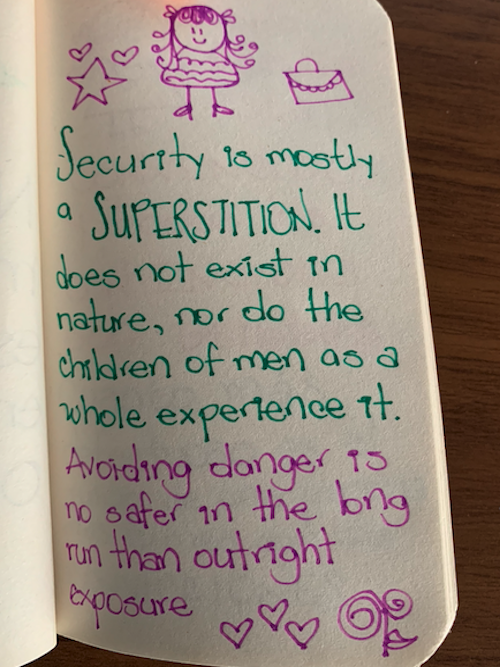 Security is mostly
a SUPERSTITION. It
does not exist in
nature, nor do the
children of men as a
whole experience it.
Avoiding danger is
no safer in the long
run than outright
exposure